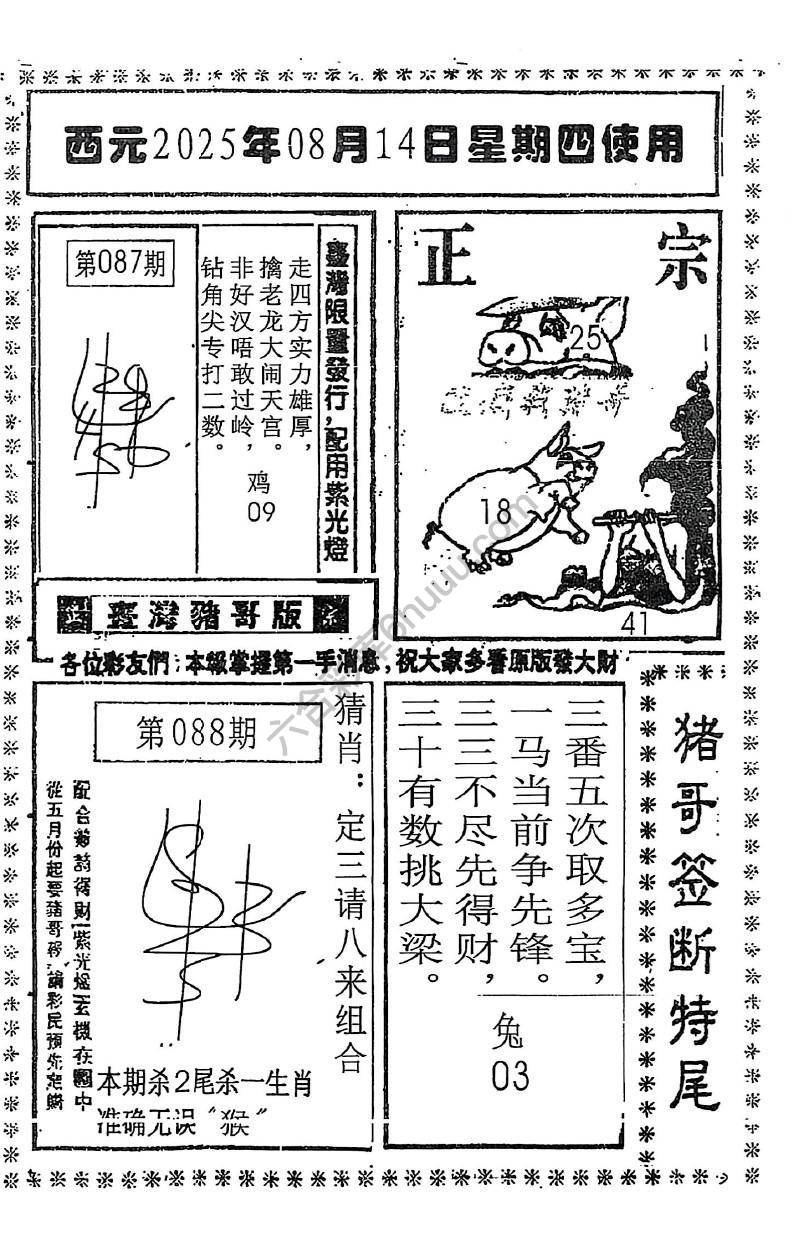 西元2025年08月14日星期四使用
第087期
走四方实力雄厚，
擒老龙大闹天宫。
非好汉唔敢过岭，
钻角尖专打二数。
鸡
09
臺灣限量發行，配用紫光燈
正宗
25
18
41
臺灣豬哥版
各位彩友們：本報掌握第一手消息，祝大家多看原版發大財
第088期
猜肖：定三请八来组合
本期杀2尾杀一生肖
准确无误“猴”
三番五次取多宝，
一马当前争先锋。
三三不尽先得财，
三十有数挑大梁。
兔
03
猪哥签断特尾
六合彩库